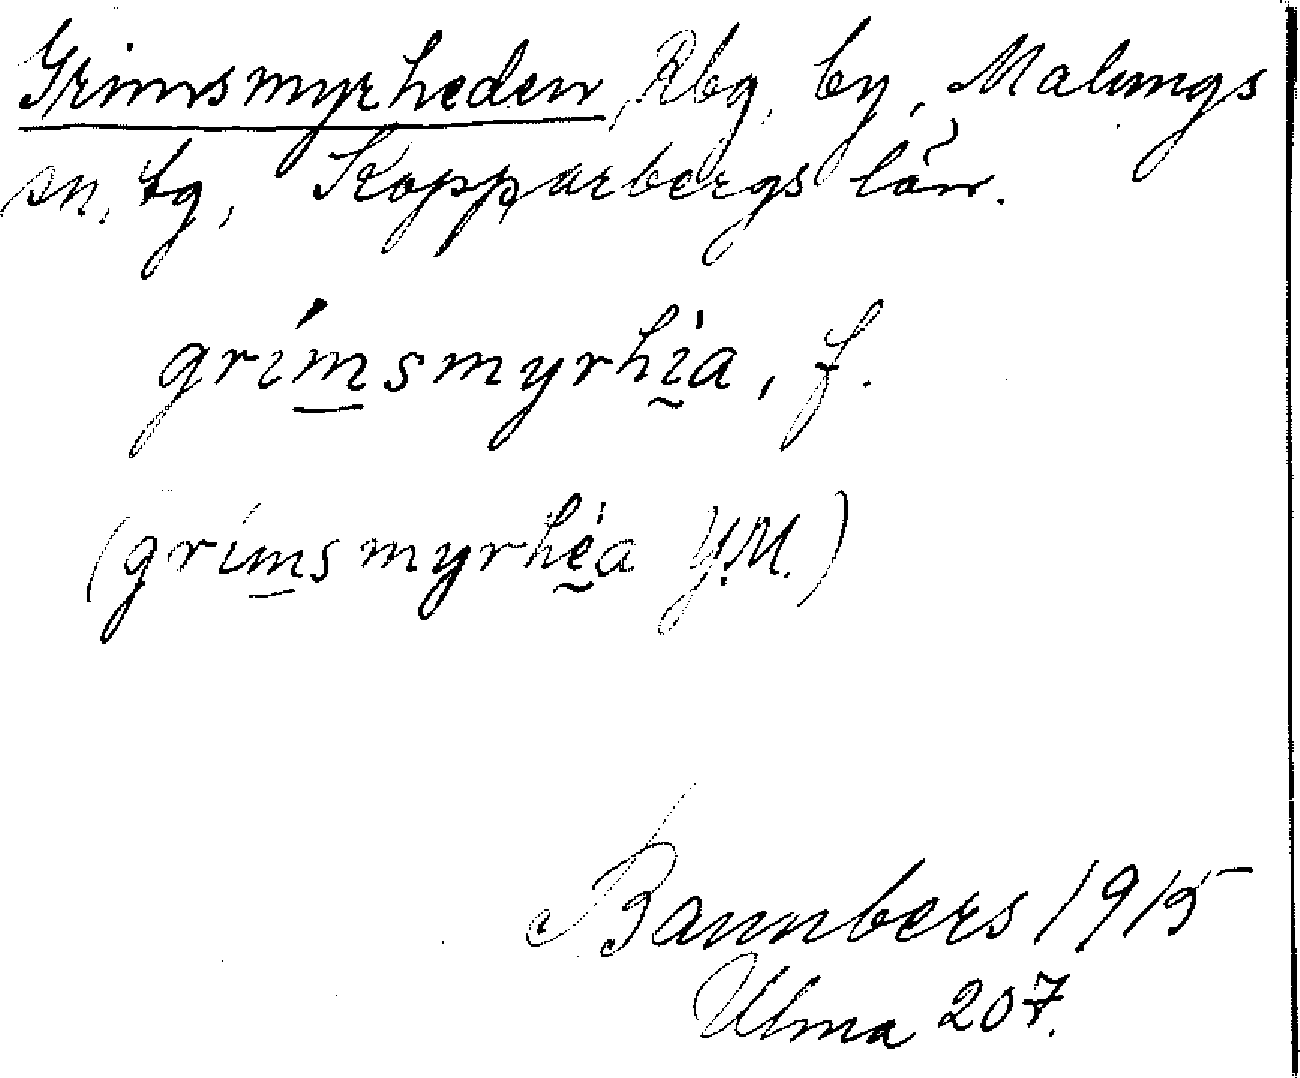 Grimsmyrheden, Rbg, by, Malungs
sn, tg, Kopparbergs län.
grímsmyrhìa, f.
(grímsmyrhèa Y.M.)
Bannbers 1915
Ulma 207.